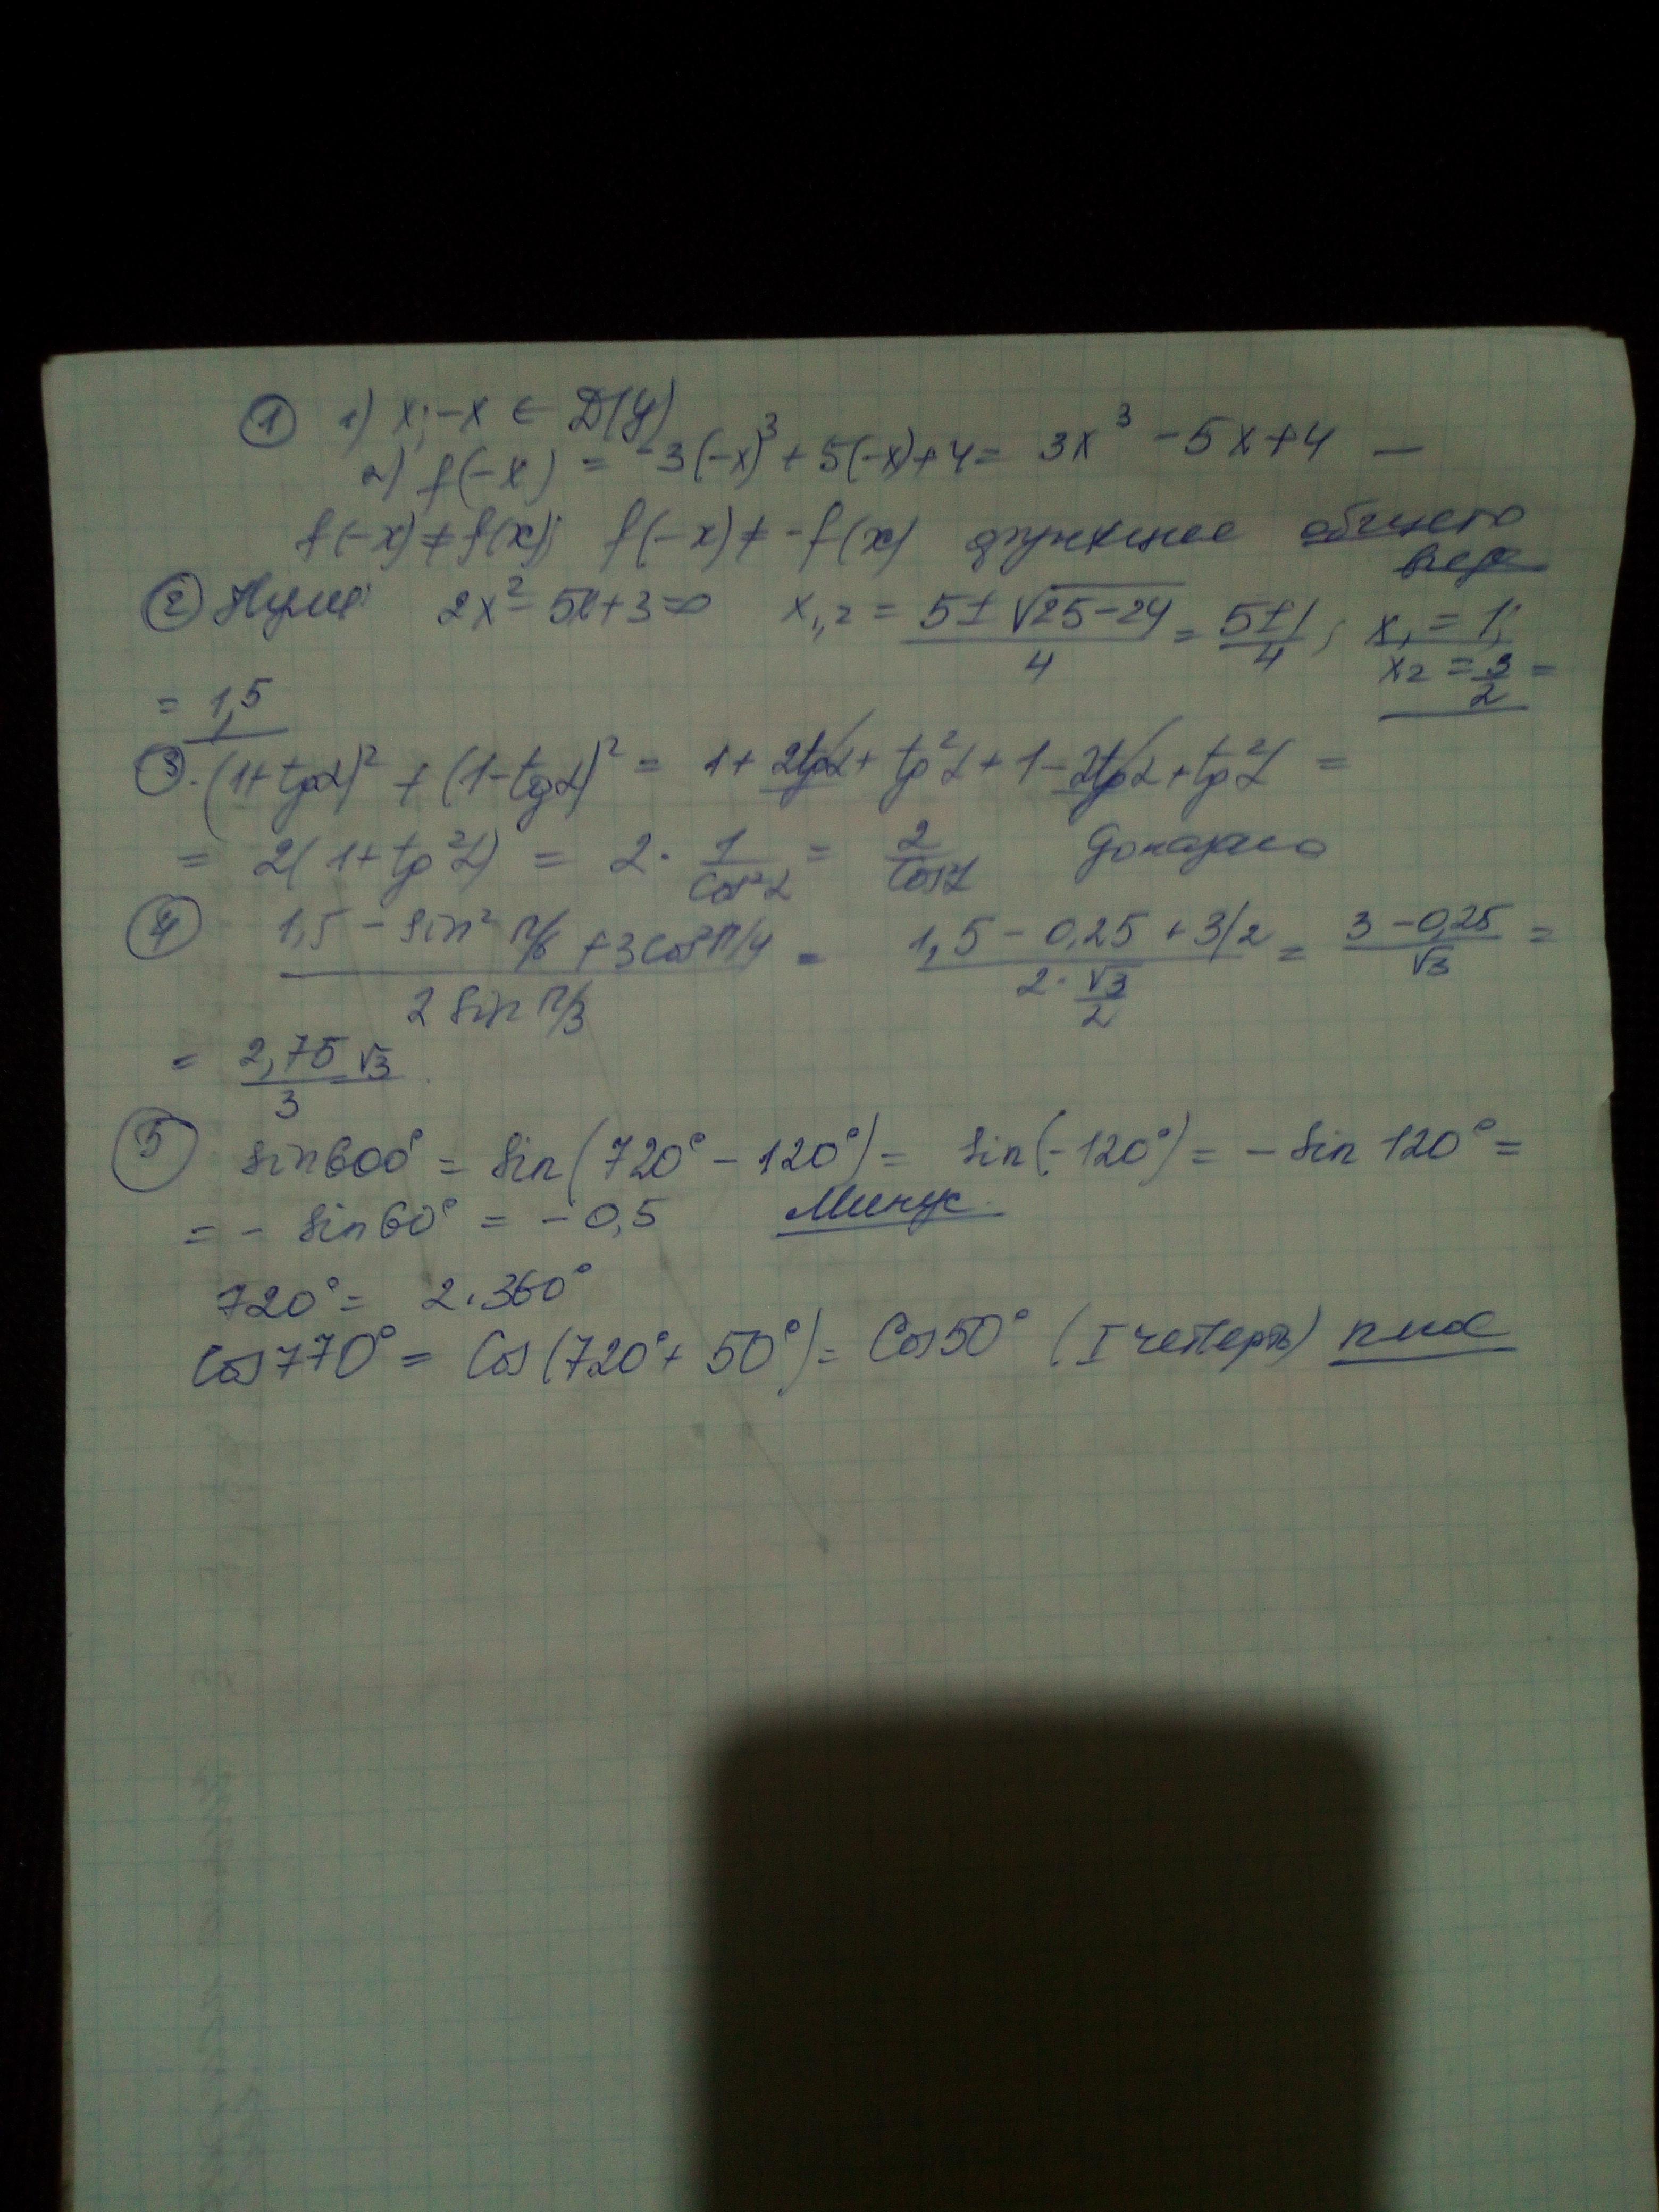 ① 1) x; -x ∈ D(y)
2) f(-x) = -3(-x)³ + 5(-x) + 4 = 3x³ - 5x + 4 —
f(-x) ≠ f(x); f(-x) ≠ -f(x) функция общего
вида
② Нули: 2x² - 5x + 3 = 0 x₁,₂ = (5 ± √(25-24))/4 = (5 ± 1)/4; x₁ = 1; x₂ = 3/2 =
= 1,5
③. (1+tgα)² + (1-tgα)² = 1 + 2tgα + tg²α + 1 - 2tgα + tg²α =
= 2(1+tg²α) = 2 · 1/cos²α = 2/cos²α Доказано
④ (1,5 - sin² π/6 + 3cos² π/4)/(2 sin π/3) = (1,5 - 0,25 + 3/2)/(2 · √3/2) = (3 - 0,25)/√3 =
= 2,75√3/3
⑤ sin600° = sin(720° - 120°) = sin(-120°) = -sin 120° =
= - sin60° = -0,5 Минус.
720° = 2·360°
Cos770° = Cos(720° + 50°) = Cos50° (I четверть) плюс